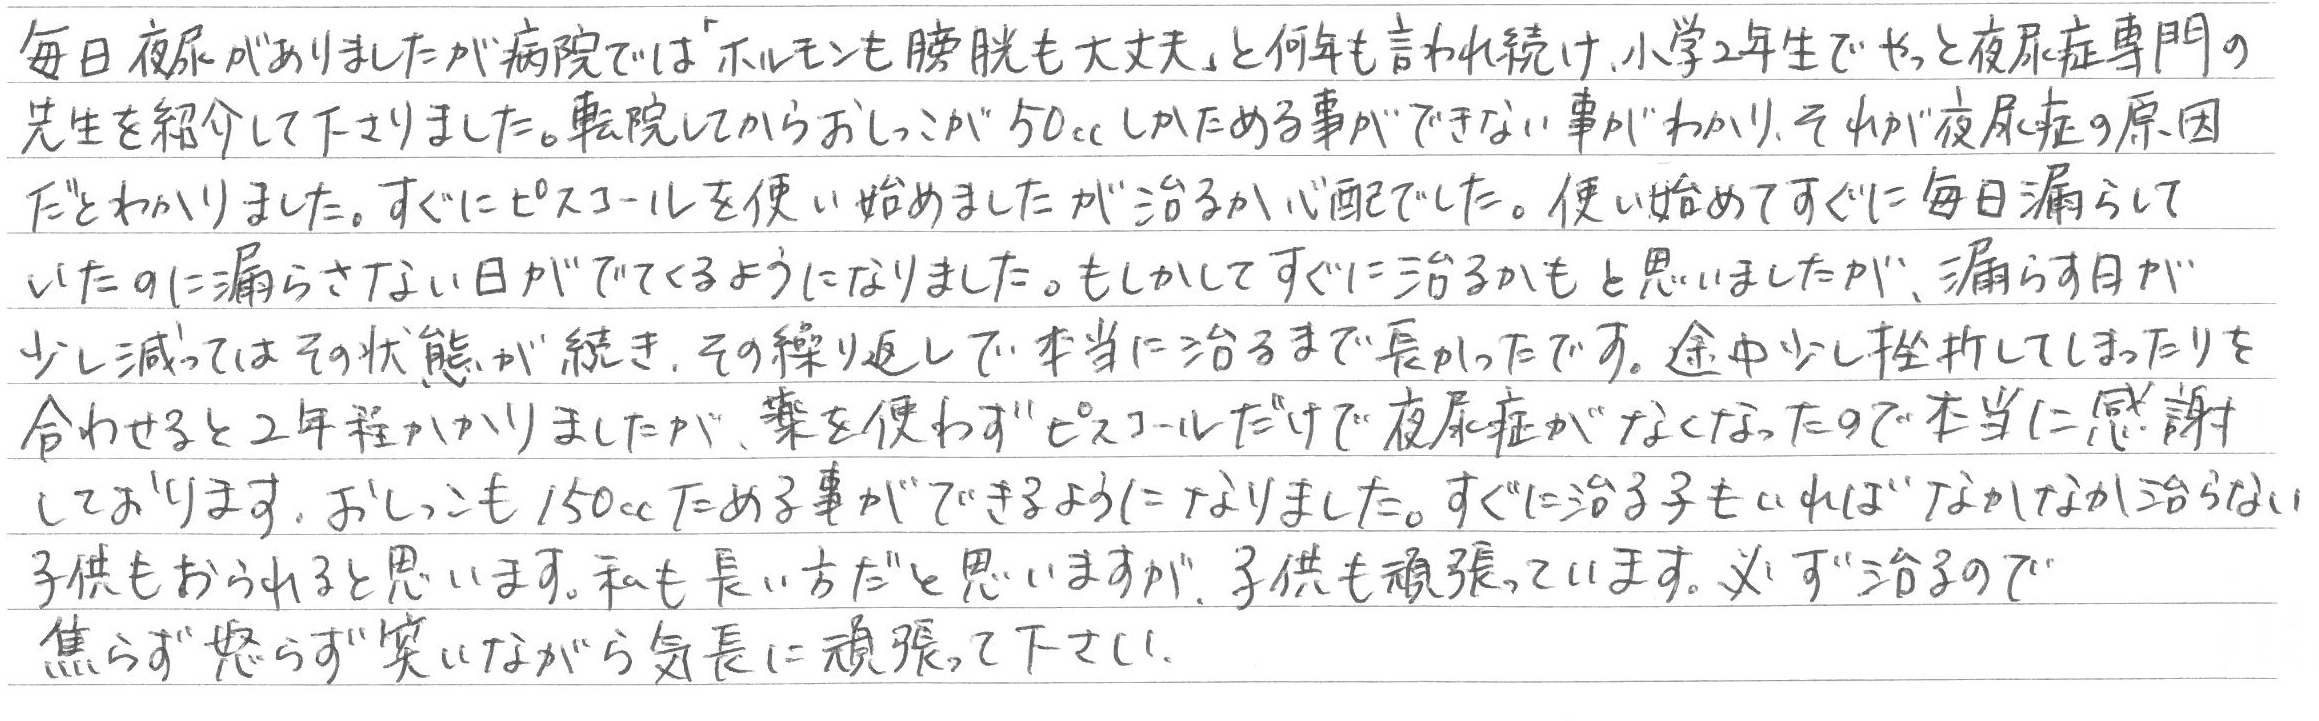 毎日夜尿がありましたが病院では「ホルモンも膀胱も大丈夫」と何年も言われ続け、小学2年生でやっと夜尿症専門の
先生を紹介して下さりました。転院してからおしっこが50ccしかためる事ができない事がわかり、それが夜尿症の原因
だとわかりました。すぐにピスコールを使い始めましたが治るか心配でした。使い始めてすぐに毎日漏らして
いたのに漏らさない日がでてくるようになりました。もしかしてすぐに治るかもと思いましたが、漏らす日が
少し減ってはその状態が続き、その繰り返しで本当に治るまで長かったです。途中少し挫折してしまったりを
合わせると2年程かかりましたが、薬を使わずピスコールだけで夜尿症がなくなったので本当に感謝
しております。おしっこも150ccためる事ができるようになりました。すぐに治る子もいればなかなか治らない
子供もおられると思います。私も長い方だと思いますが、子供も頑張っています。必ず治るので
焦らず怒らず笑いながら気長に頑張って下さい。